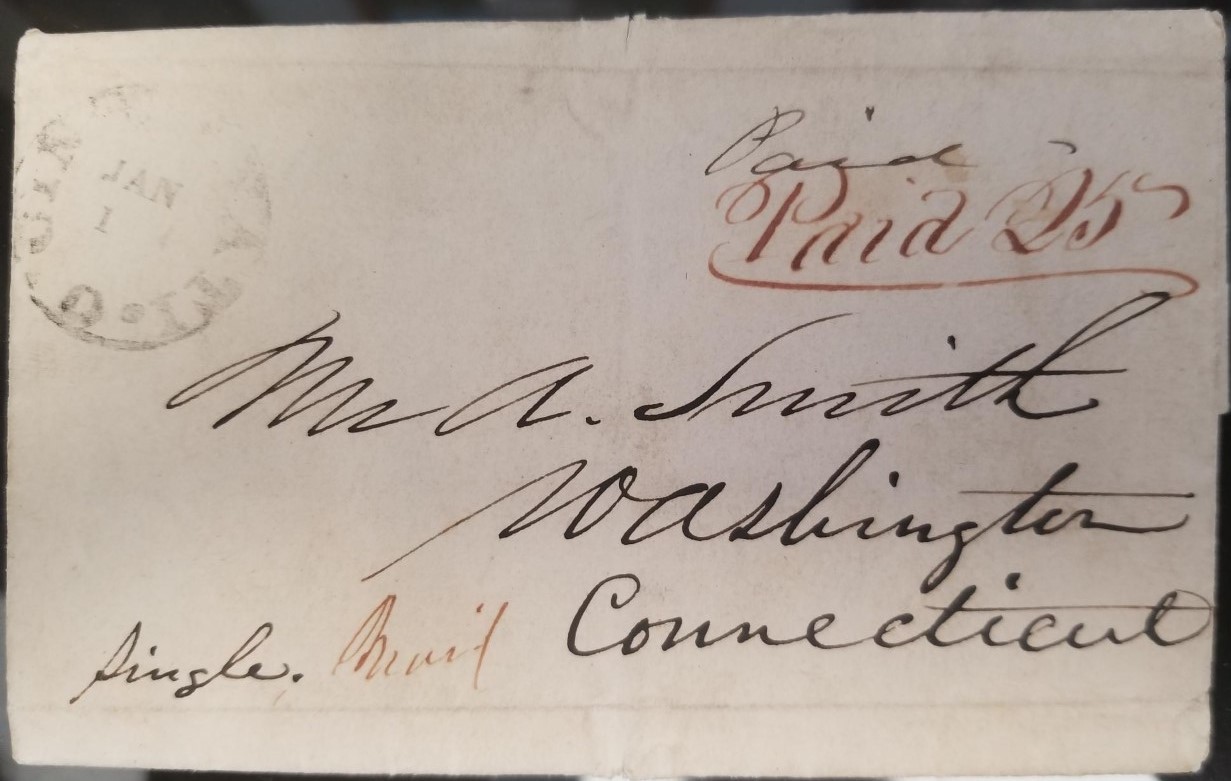 JAN
1
Paid
Paid 25
Mr A. Smith
Washington
Connecticut
Single.